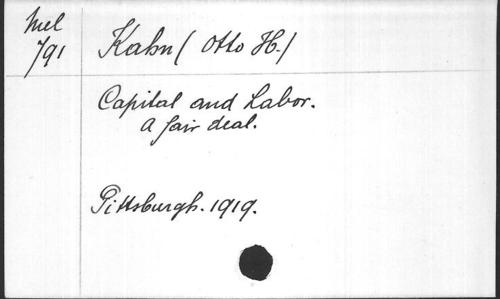 Mel
791
Kahn (Otto H.)
Capital and Labor.
A fair deal.
Pittsburgh. 1919.